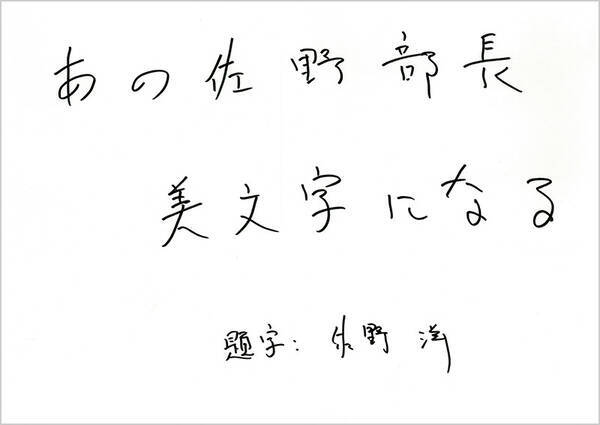 あの佐野部長
美文字になる
題字: 佐野 洋